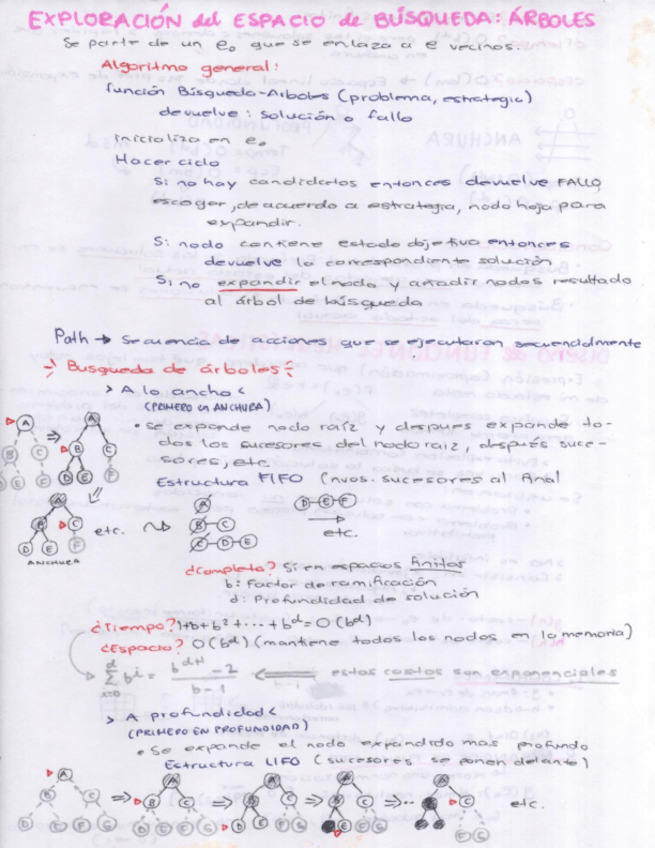 EXPLORACIÓN del ESPACIO de BÚSQUEDA: ÁRBOLES
Se parte de un e₀ que se enlaza a e vecinos.
Algoritmo general:
función Búsqueda-Arboles (problema, estrategia)
devuelve: solución o fallo
inicializa en e₀
Hacer ciclo
Si no hay candidatos entonces devuelve FALLO
escoger, de acuerdo a estrategia, nodo hoja para
expandir.
Si nodo contiene estado objetivo entonces
devuelve la correspondiente solución
Si no expandir el nodo y añadir nodos resultado
al árbol de búsqueda
Path → Secuencia de acciones que se ejecutaron secuencialmente
Busqueda de árboles:
> A lo ancho <
(PRIMERO en ANCHURA)
• se expande nodo raíz y despues expande to-
dos los sucesores del nodo raiz, después suce-
sores, etc.
Estructura FIFO (nvos. sucesores al final
A ⇒ A
B C B C
D E F D E F
A
B C etc.
D E F
ANCHURA
A
B-C
C-D-E
D-E-F
etc.
¿Completa? Si en espacios finitos
b: Factor de ramificación
d: Profundidad de solución
¿Tiempo? 1+b+b²+...+b^d = O(b^d)
¿Espacio? O(b^d) (mantiene todos los nodos en la memoria)
d
∑ b^i = b^(d+1) - 2 / b-1 ⇐ estos costos son exponenciales
i=0
> A profundidad <
(PRIMERO EN PROFUNDIDAD)
• Se expande el nodo expandido más profundo
Estructura LIFO (sucesores se ponen delante)
A ⇒ A ⇒ A ⇒ A ⇒... A etc.
B C B C B C B C B C
D E F G D E F G D E F G E F G F G